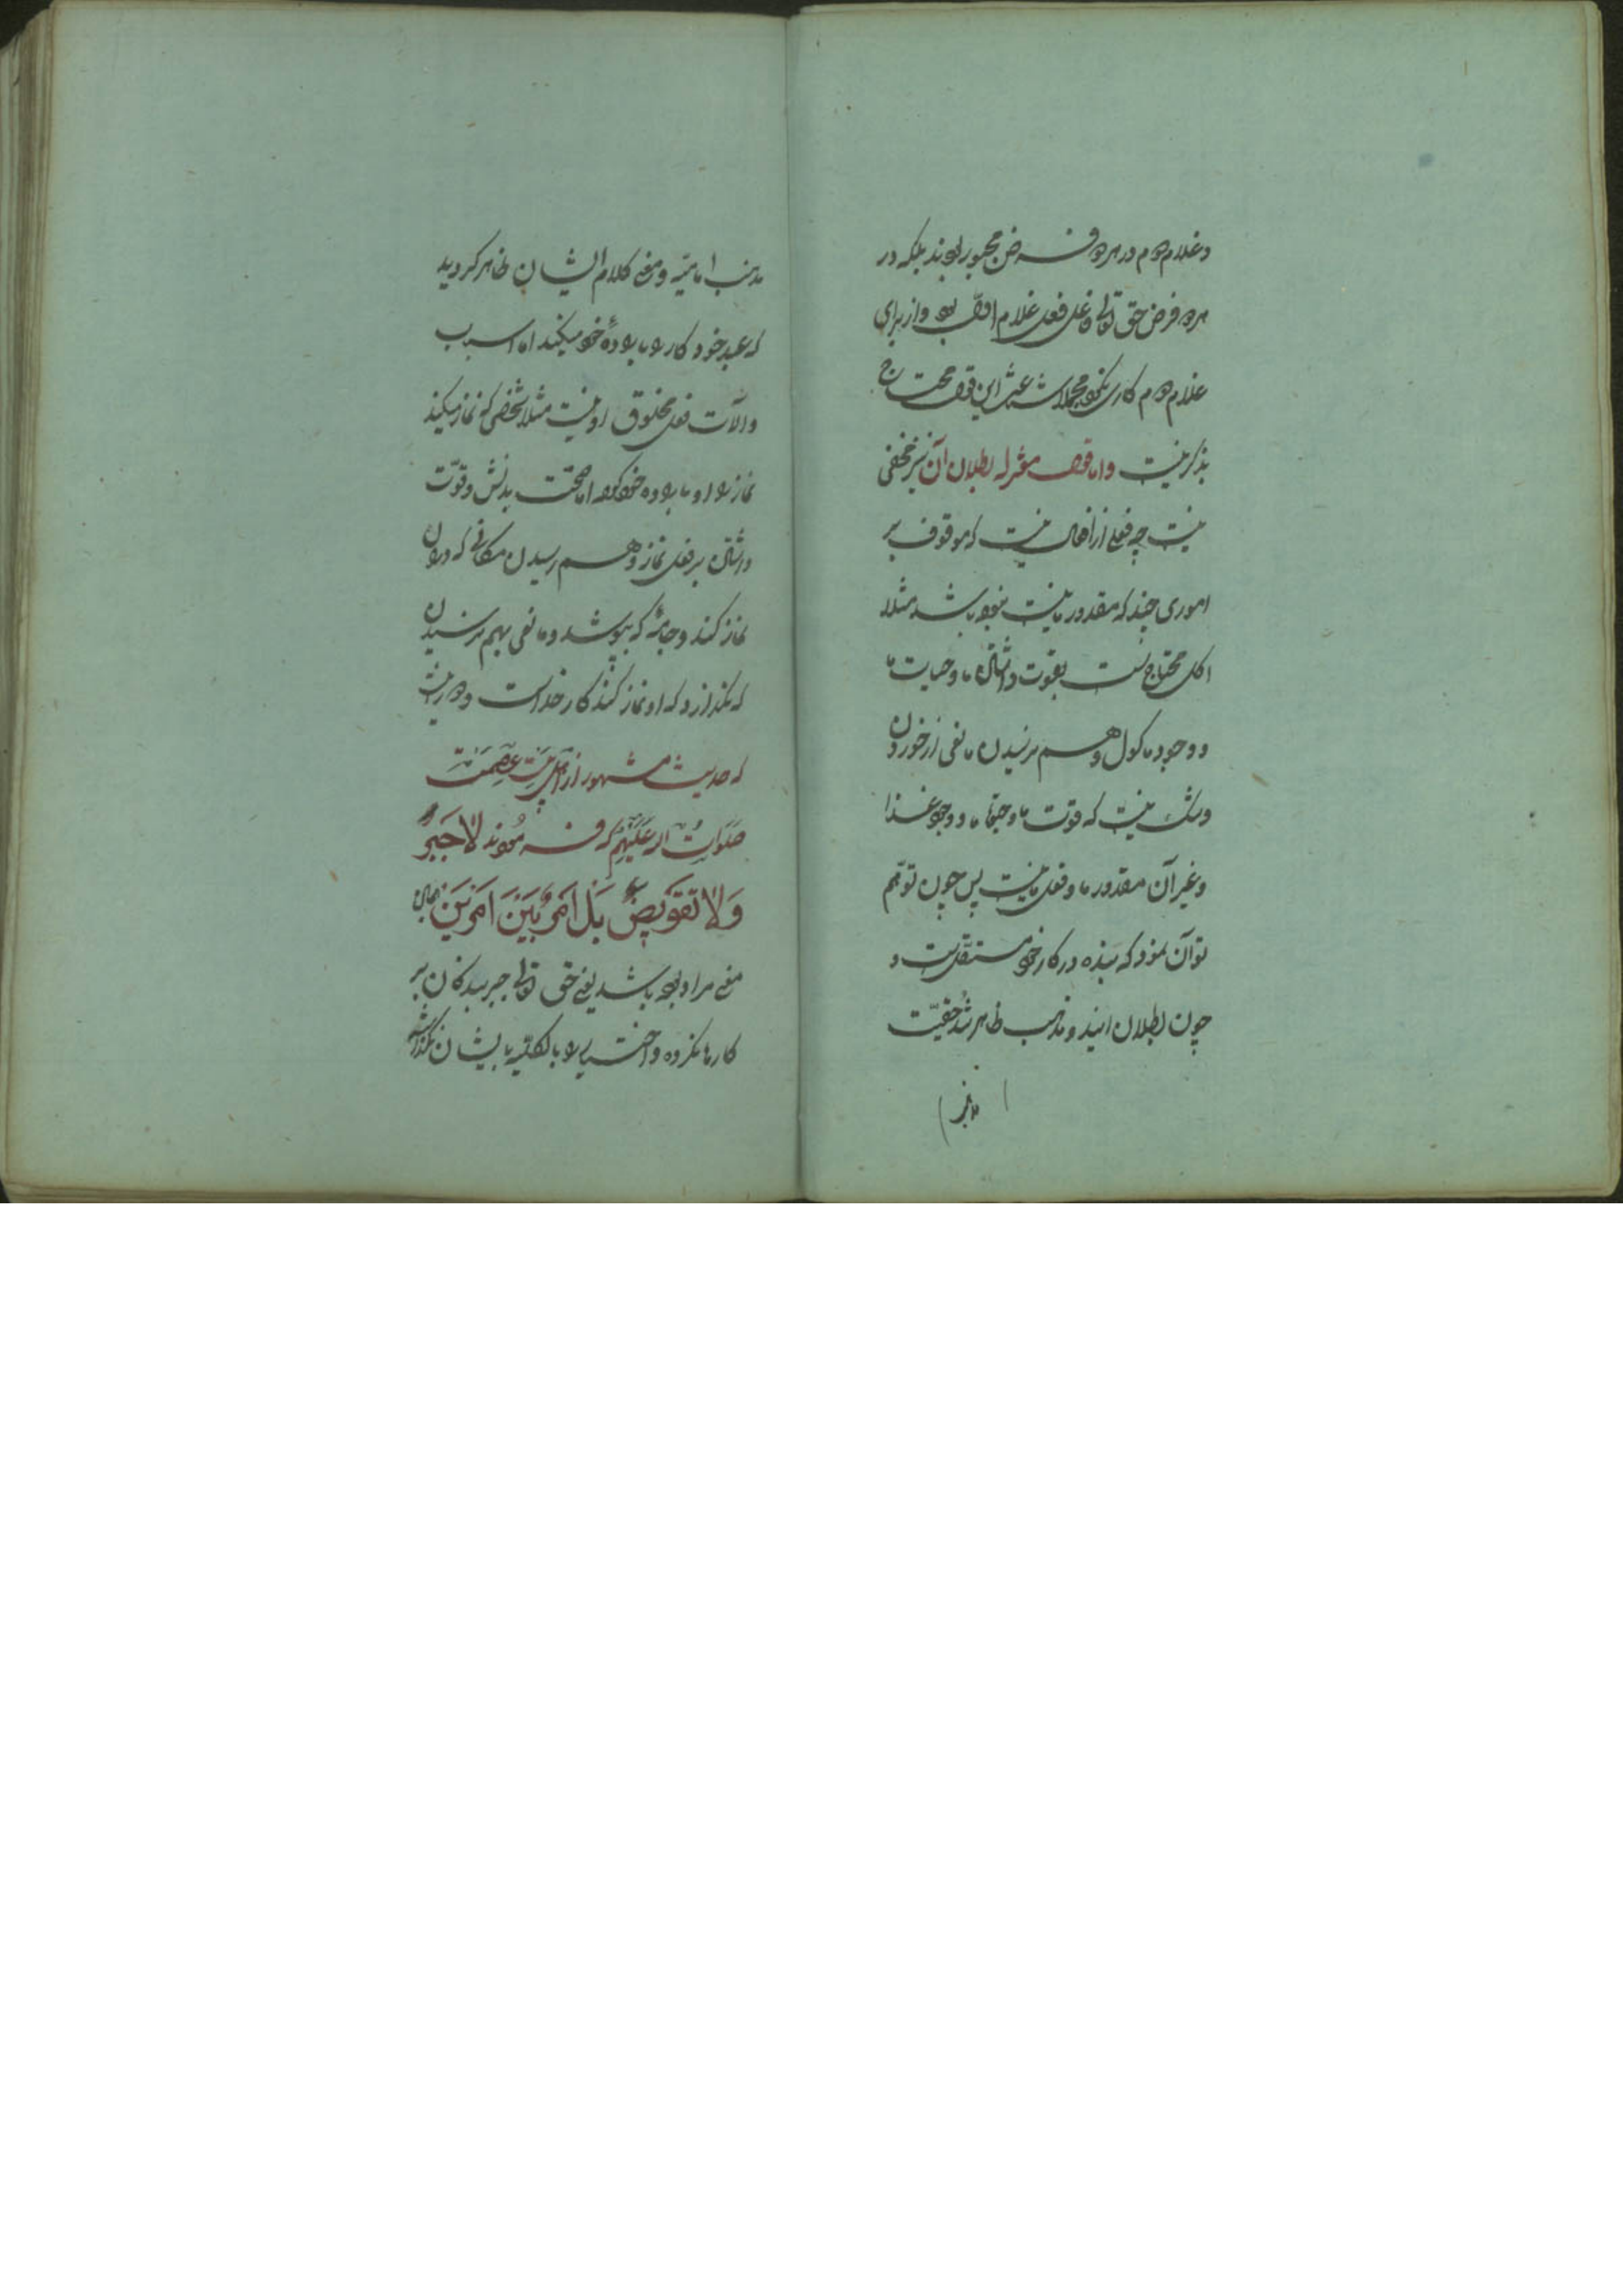 و غلام دوم در هر دو فرض مجبور بودند بلکه در
هر دو فرض حق تعالی فاعل فعل غلام اول بود و از برای
غلام دوم کاری نکرد مجملا شناعت این قول محتاج
بذکر نیست و اما قول معتزله بطلان آن نیز مخفی
نیست چه فعلی از افعال نیست که موقوف بر
اموری چند که مقدور ما نیست نبوده باشد مثلا
اکل محتاج است بقوت و اشتهای ما و حیات ما
و وجود ماکول و بهم نرسیدن مانعی از خوردن
و شک نیست که قوت ما و حیات ما و وجود غذا
و غیر آن مقدور ما و فعل ما نیست پس چون توهم
توان نمود که بنده در کار خود مستقل است و
چون بطلان ایند و مذهب ظاهر شد حقیّت
مذهب
مذهب امامیّه و معنی کلام ایشان ظاهر کردید
که عبد خود کار را باراده خود میکند اما اسباب
و آلات فعل مخلوق او نیست مثلا شخصی که نماز میکند
نماز را او باراده خود کرد اما صحّت بدنش و قوّت
و بهم رسیدن مکانی که در آن
نماز کند و جامهٔ که بپوشد و مانعی بهم نرسیدن
که نگذارد که او نماز کند کار خداست و
که حدیث مشهور از اهل بیت عصمت
صَلَوات الله عَلَیْهِمْ که فرمودند لَا جَبْرَ
وَلَا تَفْوِیضَ بَلْ اَمْرٌ بَیْنَ اَمْرَیْنِ همان
معنی مراد بوده باشد یعنی حق تعالی جبر بندکان بر
کارها نکرده و اختیار را بالکلیه بایشان نگذاشته